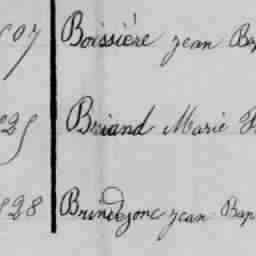 Boissière jean Bap
Briand Marie
828 Brindejonc jean Bap